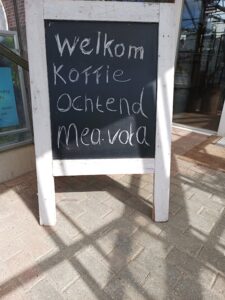 Welkom
Koffie
Ochtend
Mea. vota